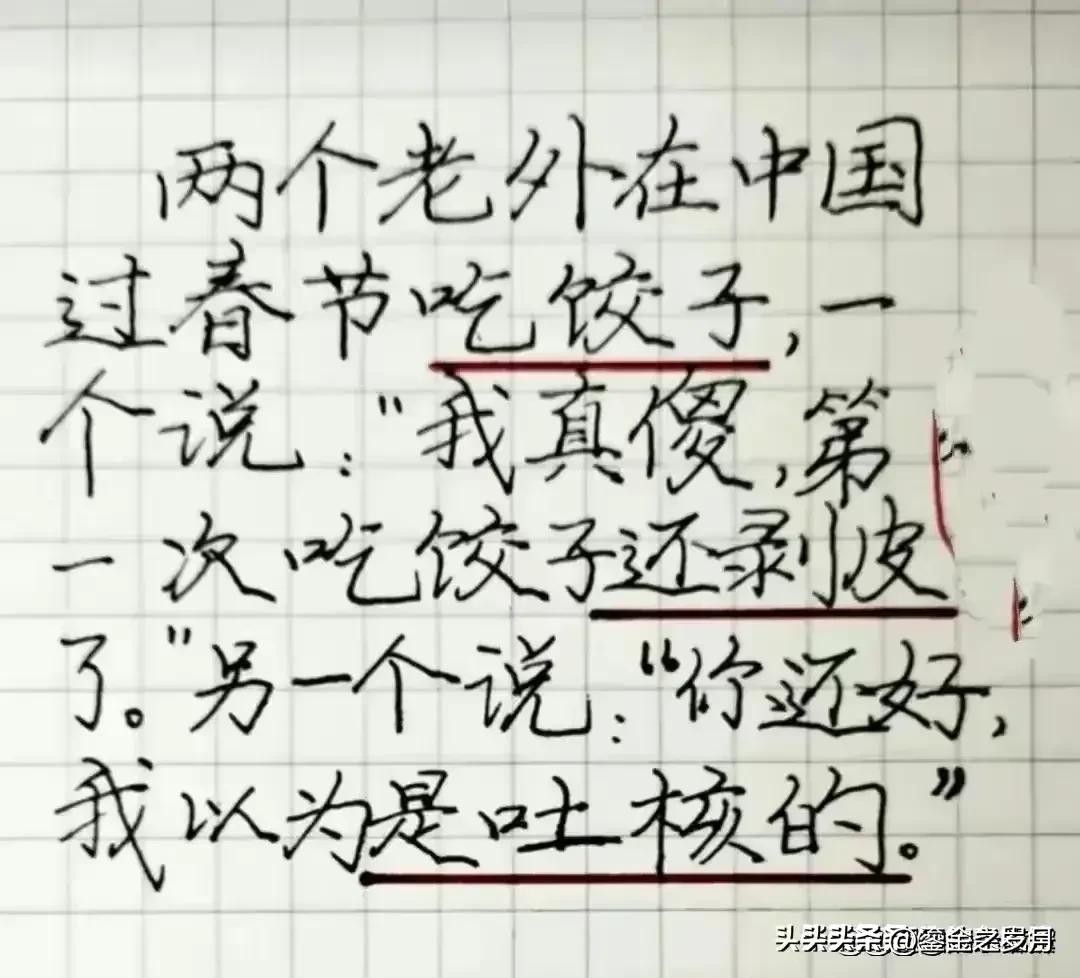 两个老外在中国
过春节吃饺子,一
个说:"我真傻,第
一次吃饺子还剥皮
了。"另一个说:"你还好,
我以为是吐核的。"